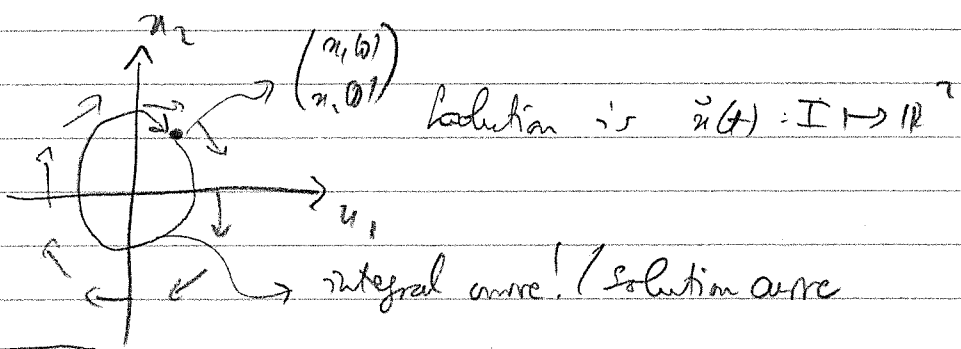 x₂
(x₁(0)
x₂(0))
Solution is x̃(t) : I ↦ ℝ²
x₁
integral curve! / solution curve